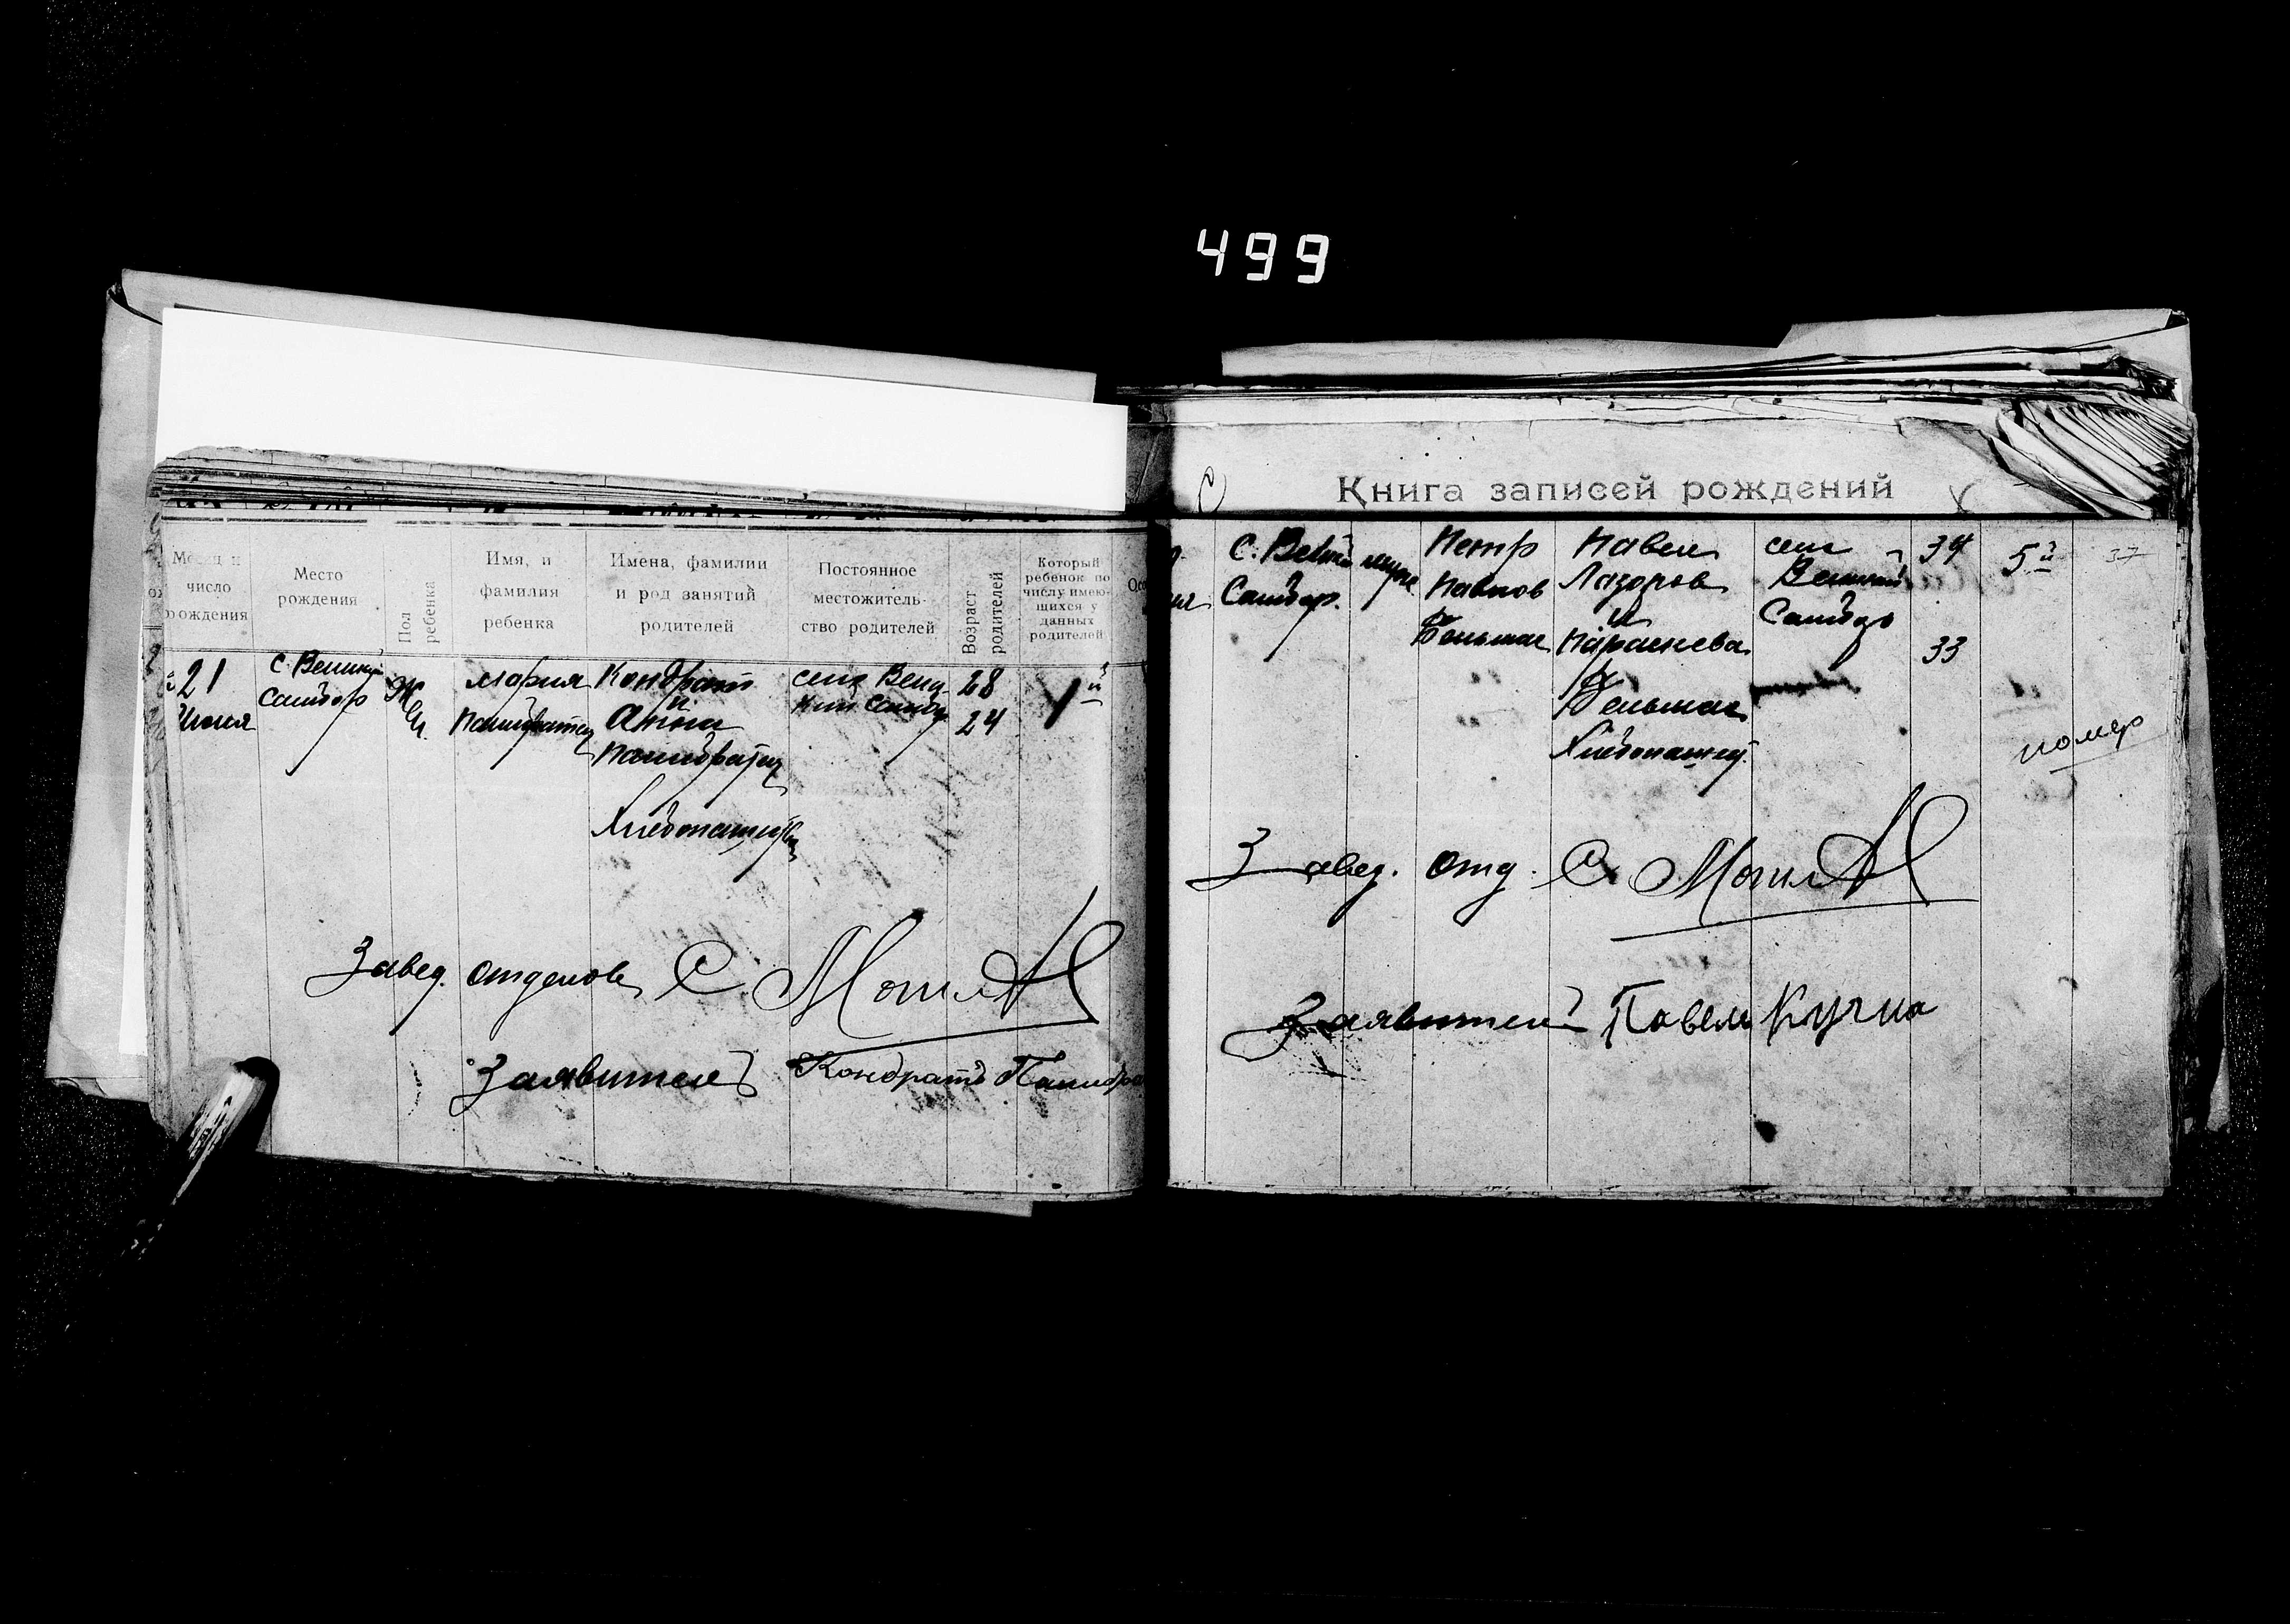 499
Месяц и число рождения
Место рождения
Пол ребенка
Имя, и фамилия ребенка
Имена, фамилии и род занятий родителей
Постоянное местожитель-
ство родителей
Возраст родителей
Который ребенок по числу имею-
щихся у данных родителей
21
Июня
с. Велик
Самбор
Мария
Кондрат
и
Анна
Хлебопашцы
село Вели-
кий Самбор
28
24
1й
Завед. отделов С.
Заявитель Кондратъ
Книга записей рождений
С.
Самбор.
муж
Петр
Павлов
Павел
Лазоров
и
Параскева
Хлебопашец
село
Великий
Самбор
34
33
5й
37
номер
Завед. отд. С.
Заявитель Павел Кучма